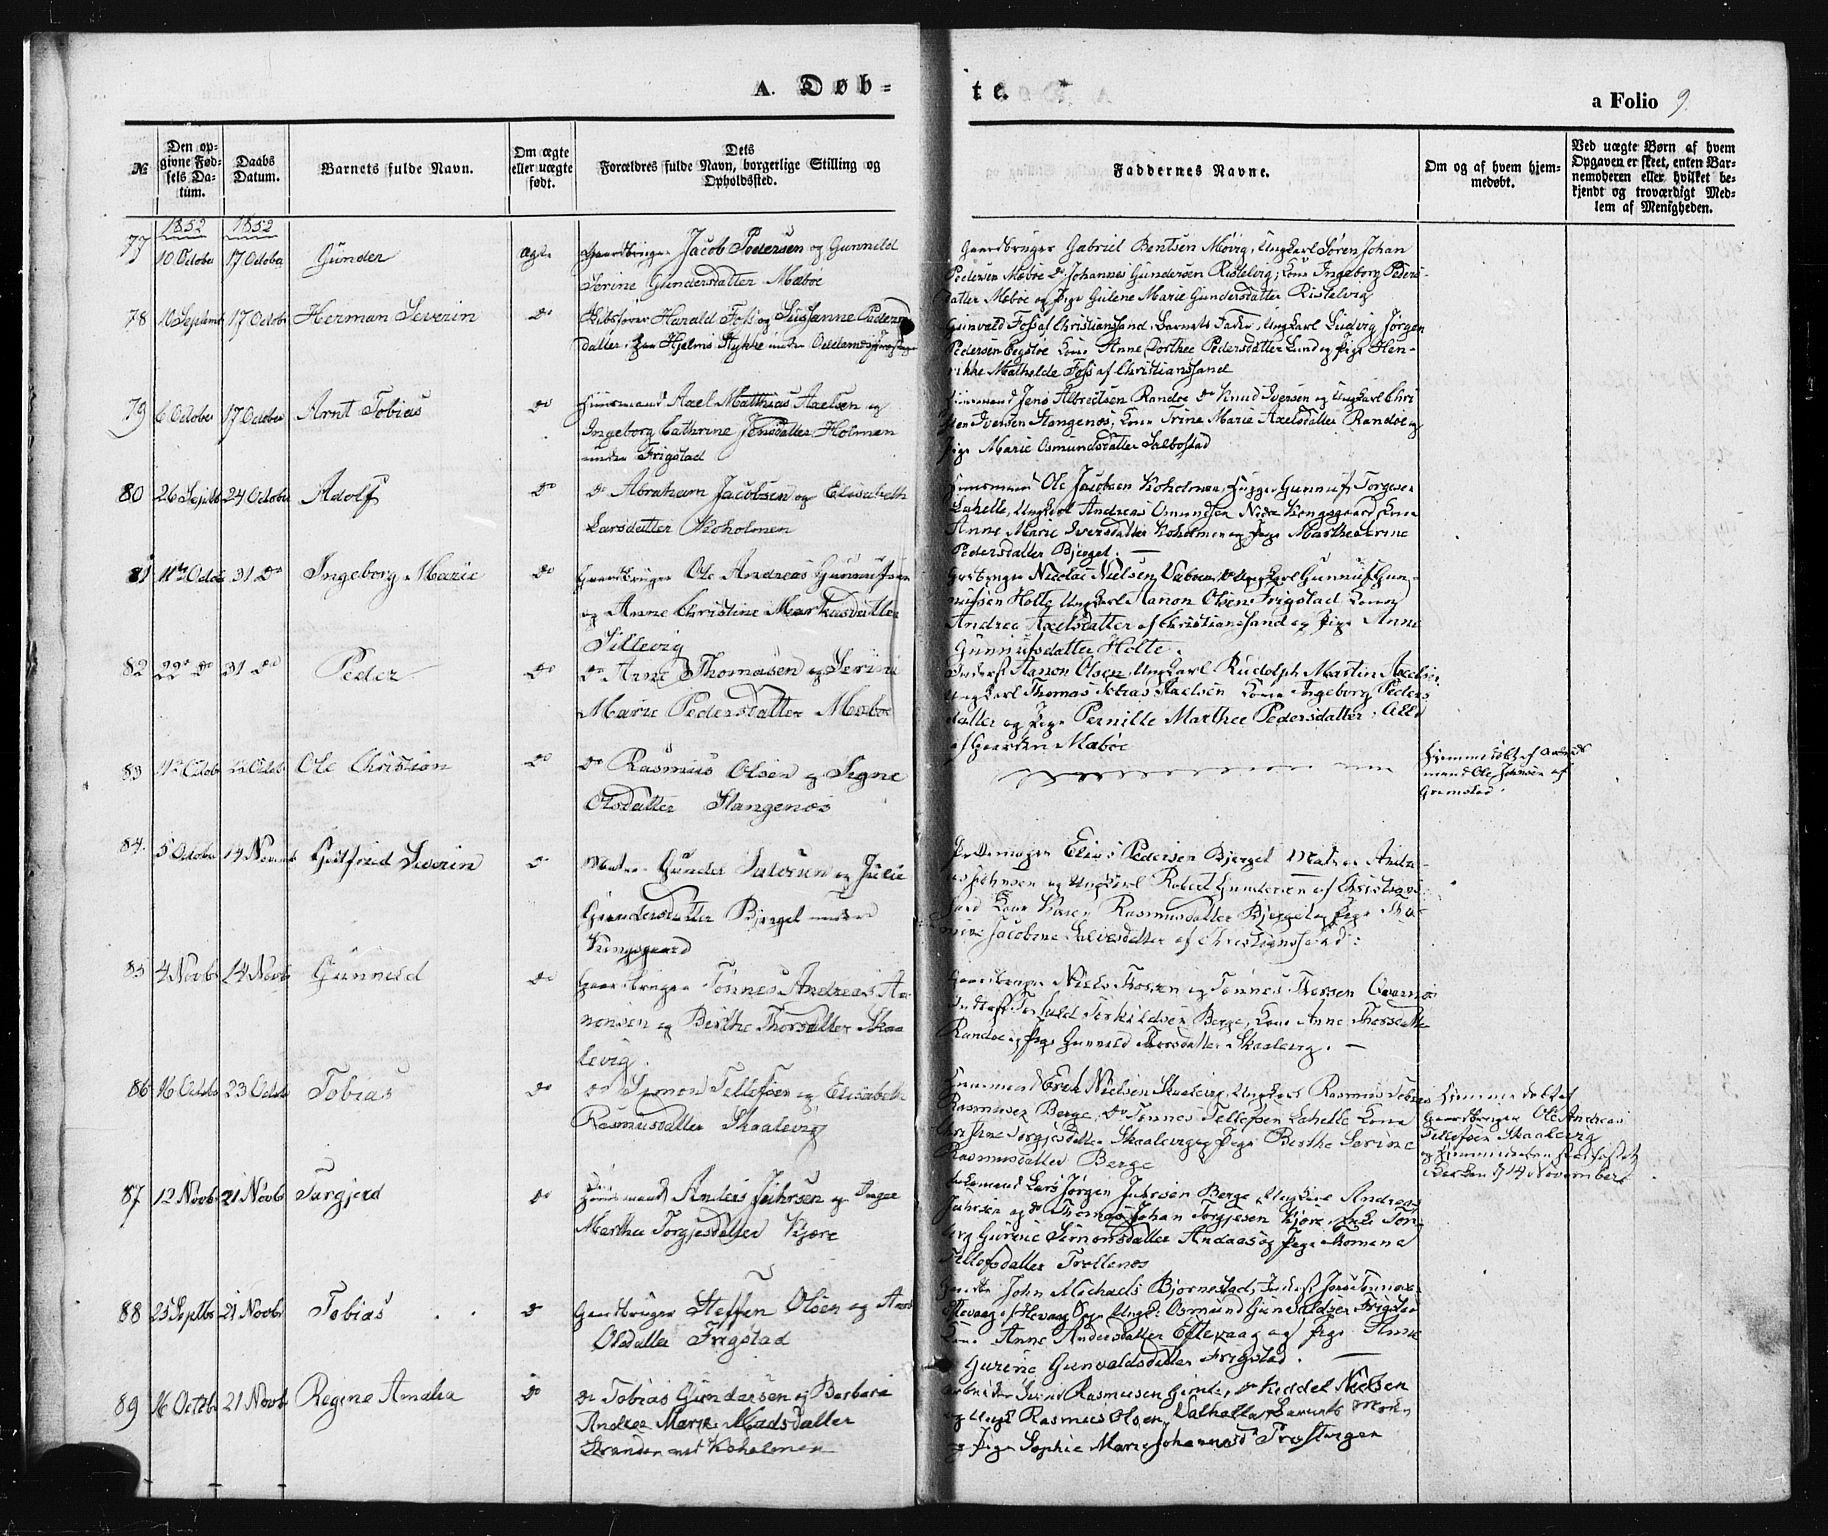 A. Døb=
te.
a Folio 9.
№
Den op-
givne Fød-
sels Da-
tum.
Daabs
Datum.
Barnets fulde Navn.
Om ægte
eller uægte
født.
Dets
Forældres fulde Navn, borgerlige Stilling og
Opholdssted.
Faddernes Navne.
Om og af hvem hjem-
medøbt.
Ved uægte Børn af hvem
Opgaven er skeet, enten Bar-
nemoderen eller hvilket be-
kjendt og troværdigt Med-
lem af Menigheden.
1852 1852
77 10 October 17 October Gunder ægte Gaardbruger Jacob Pedersen og Gunnild
Serine Gundersdatter Mæbøe
Gaardbruger Gabriel Bentsen Møvig, Ungkarl Søren Johan
Pedersen Mæbøe Do Johannes Gundersen Ristelvig, Kone Ingeborg Peders-
datter Mæbøe og Pige Gulene Marie Gundersdatter Ristelvig
78 10 Septemb 17 Octobr Herman Severin Do Harald Foss og Susanne Peders
datter Hjelms Stykke under Oddernes
Gunvald Foss af Christiansand, Barnets Fader, Ungkarl Ludvig Jørgen
Pedersen Kone Anne Dorthee Pedersdatter Lund og Pige Hen-
rikke Mathilde Foss af Christianssand
79 6 October 17 October Arnt Tobias Do Huusmand Axel Matthias Axelsen og
Ingeborg Cathrine Jensdatter Holmen
under Frigstad
Huusmand Jens Albretsen Randøe Do Knud Iversen og Ungkarl Chri
sten Iversen Stangenæs, Kone Trine Marie Axelsdatter Randøe og
Pige Marie Osmundsdatter Salbostad
80 26 Septb 24 October Adolf Do Do Abraham Jacobsen og Elisabeth
Larsdatter Koholmen
Huusmand Ole Jacobsen Koholmen, Gunnuf Torgesen
Lahelle, Ungkarl Andreas Omundsen Nedre Kongsgaard Kone
Anne Marie Iversdatter Koholmen og Pige Marthea Serine
Pedersdatter Bjerget. —
81 31 Do Ingeborg Marie Do Gaardbruger Ole Andreas Gunnufsen
og Anne Christine Markusdatter
Tillevig
Nicolai Nielsen Ungkarl Gunnuf Gun-
nufsen Holte Ungkarl Aanon Olsen Frigstad Kone
Andrea Axelsdatter af Christianssand og Pige Anne
Gunnufsdatter Holte.
82 22 Do 31 Do Peder Do Do Arne Thomasen og Serine
Marie Pedersdatter Mæbøe
Aanon Olsen, Ungkarl Rudolph Martin Axelsen
Ungkarl Thomas Tobias Axelsen Kone Ingeborg Peders
datter og Pige Pernille Marthee Pedersdatter, Alle
af Gaarden Mæbøe
83 Octob Ole Christian Do Do Rasmus Olsen og Signe
Olsdatter Stangenæs
Hjemmedøbt af
mand Ole Johnsen af
Grimstad.
84. 5 October 14 Novemb Gudfried Severin Do Matros Gunder Salvesen og Julie
Gundersdatter Bjerget under
Kongsgaard
Elias Pedersen Bjerget Matros Andre-
as Johnsen og Ungkarl Robert Gundersen af Christians
sand Kone Karen Rasmusdatter Bjerget og Pige Tho-
mine Jacobine Salvesdatter af Christianssand.
85 4 Novbr 14 Novb Gunnild Do Gaardbruger Tønnes Andreas Aa-
nonsen og Berthe Thorsdatter Skaa
levig.
Gaardbruger Niels Thorsen og Tønnes Thorsen
Terkildsen Berge, Kone Anne Thorsdatter
Randøe og Pige Gunnild Thorsdatter Skaalevig. —
86 16 Octobr 23 Octobr Tobias Do Do Simon Tellefsen og Elisabeth
Rasmusdatter Skaalevig
Huusmand Erik Nielsen Skaalevig, Ungkarl Rasmus Tobias
Rasmusen Berge, Do Tønnes Tellefsen Lahelle Kone
Christine Torgjesdatter Skaalevig og Pige Berthe Serine
Rasmusdatter Berge
Hjemmedøbt af
Gaardbruger Ole Andreas
Tellefsen Skaalevig
og Hjemmedaaben stadfæstet
i Kirken d 14 November
87 12 Novbr 21 Novbr Targjerd Do Huusmand Anders Juhrsen og Inger
Marthea Torgjesdatter Kjøre
Huusmand Lars Jørgen Juhrsen Berge, Ungkarl Andreas
Juhrsen og Do Thomas Johan Torgjesen Kjøre, Enke Tor
borg Gurine Simonsdatter Andaas og Pige Thomene
Tellefsdatter Trollenes
88 25 Septbr 21 Novbr Tobias Do Gaardbruger Steffen Olsen og Anne
Olsdatter Frigstad
John Michaels Bjørnestad,
Ungk. Osmund Gunvaldsen Frigstad
Kone Anne Andersdatter Eftevaag og Pige Anne
Gurine Gunvaldsdatter Frigstad. —
89 16 Octbr 21 Novbr Regine Amalia Do Do Tobias Gundersen og Barbara
Andrea Marie Madsdatter
Stranden ved Koholmen
Arbeider Svend Rasmussen Gimle, Do Keddel Nielsen
og Ungk Rasmus Olsen, Valhalla, Barnets Moder
og Pige Sophie Marie Johannesd Træstangen